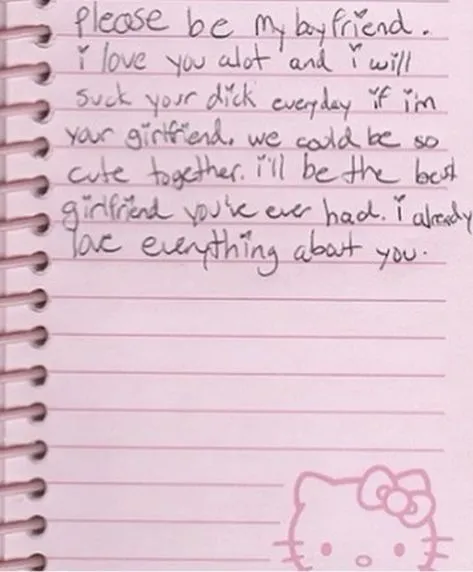 please be my boyfriend.
i love you alot and i will
suck your dick everyday if i'm
your girlfriend. we could be so
cute together. i'll be the best
girlfriend you've ever had. i already
love everything about you.